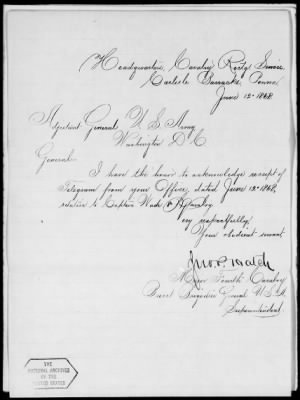 Headquarters Cavalry Rectg Service
Carlisle Barracks, Penna
June 12th 1868.
Adjutant General U. S. Army
Washington D. C.
General
I have the honor to acknowledge receipt of
Telegram from your Office, dated June 12th 1868,
relative to Captain Wade Cavalry
Very respectfully
Your obedient servant
Jno. P. Hatch
Major Fourth Cavalry
Brevet Brigadier General U.S.A.
Superintendent
THE
NATIONAL ARCHIVES
OF THE
UNITED STATES